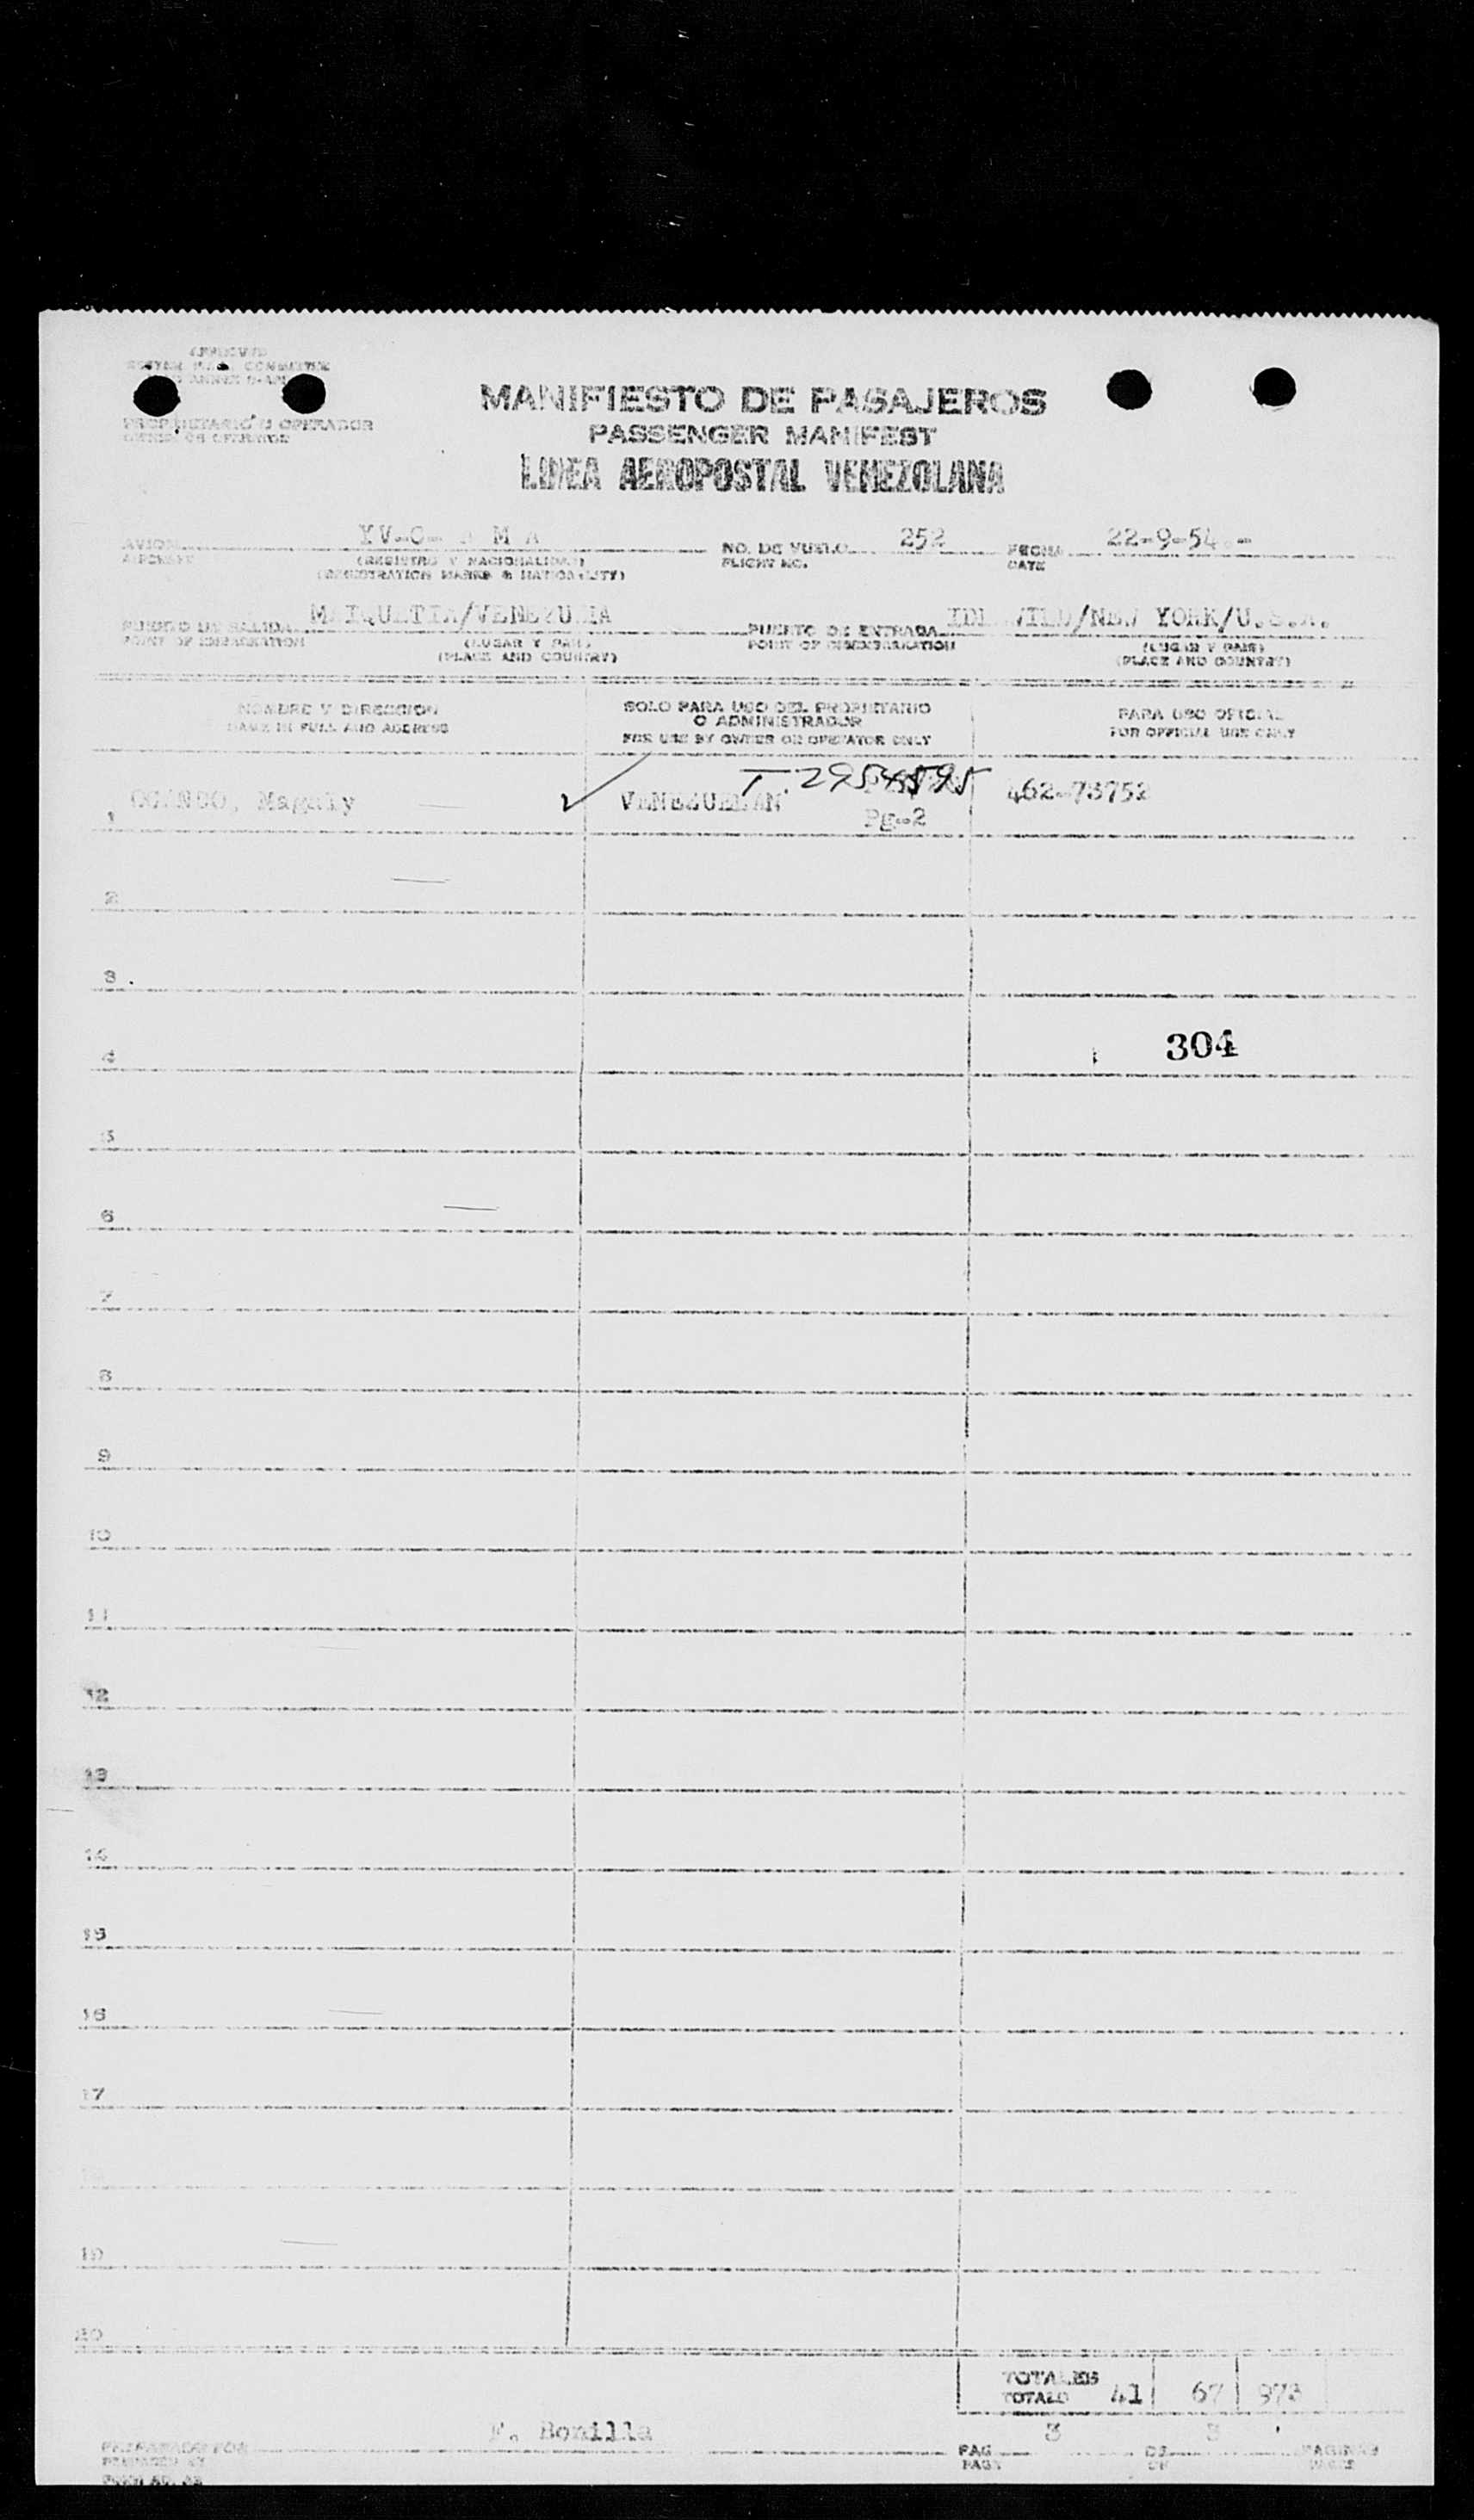 APPROVED
PROPRIETARIO U OPERADOR
OWNER OR OPERATOR
MANIFIESTO DE PASAJEROS
PASSENGER MANIFEST
LINEA AEROPOSTAL VENEZOLANA
AVION YV-C- M A NO. DE VUELO 252 FECHA 22-9-54.-
AIRCRAFT (REGISTRO Y NACIONALIDAD) FLIGHT NO. DATE
(REGISTRATION MARKS & NATIONALITY)
PUERTO DE SALIDA MAIQUETIA/VENEZUELA PUERTO DE ENTRADA IDLEWILD/NEW YORK/U.S.A.
POINT OF EMBARKATION (LUGAR Y PAIS) POINT OF DISEMBARKATION (LUGAR Y PAIS)
(PLACE AND COUNTRY) (PLACE AND COUNTRY)
NOMBRE Y DIRECCION SOLO PARA USO DEL PROPRIETARIO PARA USO OFICIAL
NAME IN FULL AND ADDRESS O ADMINISTRADOR FOR OFFICIAL USE ONLY
FOR USE BY OWNER OR OPERATOR ONLY
T. 2954595
1 OCANDO, Magaly VENEZUELAN 462-73752
Pg-2
2
3
4 304
5
6
7
8
9
10
11
12
13
14
15
16
17
19
20
TOTALES 41 67 973
F. Bonilla 3 3
PREPARADO POR PAG DE PAGINAS
PREPARED BY PAGE OF PAGES